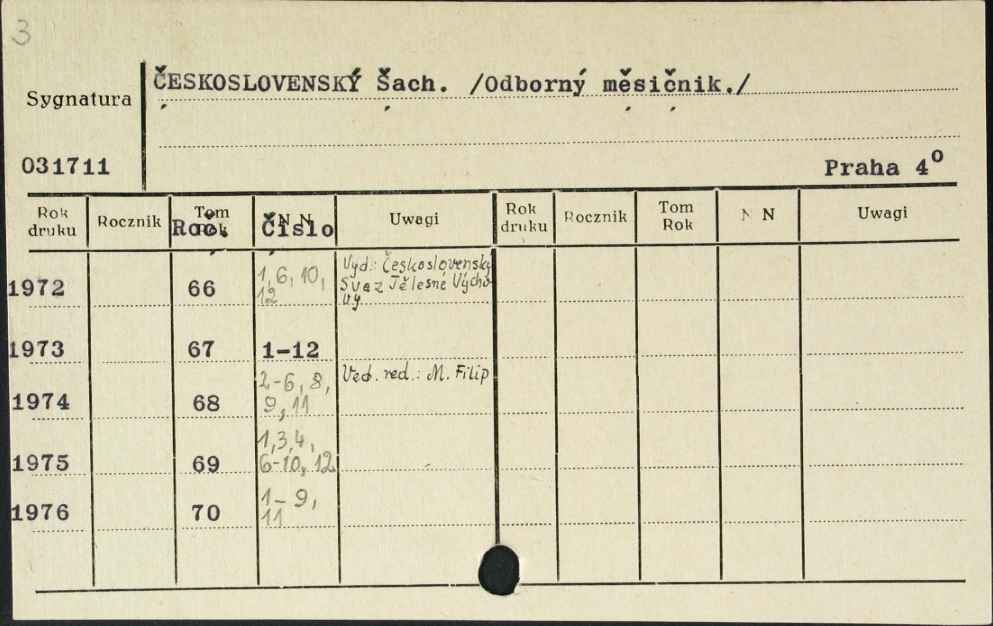 3
ČESKOSLOVENSKÝ Šach. /Odborný měsičnik./
Sygnatura
031711
Praha 4º
Rok druku Rocznik Tom Rok N N Uwagi Rok druku Rocznik Tom Rok N N Uwagi
Roč. Číslo
1972 66 1, 6, 10, 12 Vyd.: Československý Svaz Tělesné Výchovy.
1973 67 1-12
1974 68 2-6, 8, 9, 11 Ved. red.: M. Filip
1975 69 1, 3, 4, 6-10, 12
1976 70 1-9, 11